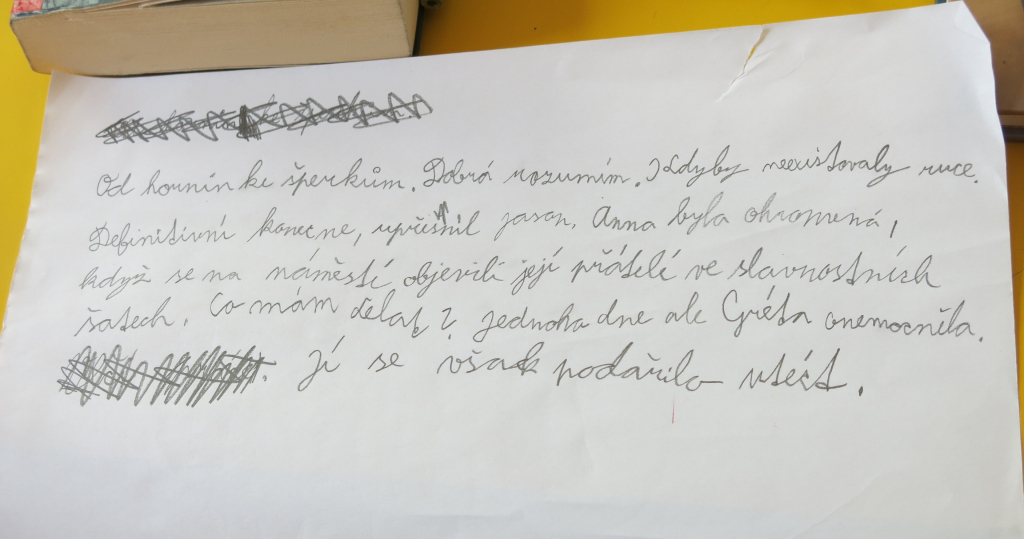 Od hornin ke šperkům. Dobrá rozumím. Kdyby neexistovaly ruce.
Definitivní konecne, upřesnil jason. Anna byla ohromená,
když se na náměstí objevili její přátelé ve slavnostních
šatech. Co mám dělat? jednoho dne ale Gréta onemocněla.
Jí se však podařilo utéct.